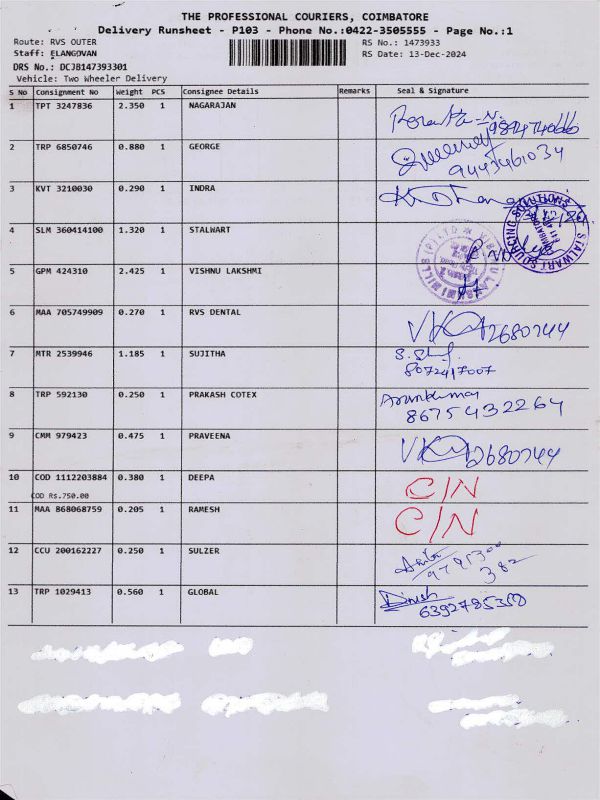 THE PROFESSIONAL COURIERS, COIMBATORE
Delivery Runsheet - P103 - Phone No.:0422-3505555 - Page No.:1
Route: RVS OUTER RS No.: 1473933
Staff: ELANGOVAN RS Date: 13-Dec-2024
DRS No.: DCJB147393301
Vehicle: Two Wheeler Delivery
S No Consignment No Weight PCS Consignee Details Remarks Seal & Signature
1 TPT 3247836 2.350 1 NAGARAJAN
2 TRP 6850746 0.880 1 GEORGE
9443461034
3 KVT 3210030 0.290 1 INDRA
4 SLM 360414100 1.320 1 STALWART
5 GPM 424310 2.425 1 VISHNU LAKSHMI
6 MAA 705749909 0.270 1 RVS DENTAL 2680744
7 MTR 2539946 1.185 1 SUJITHA
8072417007
8 TRP 592130 0.250 1 PRAKASH COTEX Arunkumar
8675432264
9 CMM 979423 0.475 1 PRAVEENA 2680744
10 COD 1112203884 0.380 1 DEEPA C/N
COD Rs.750.00
11 MAA 868068759 0.205 1 RAMESH C/N
12 CCU 200162227 0.250 1 SULZER
9795300
382
13 TRP 1029413 0.560 1 GLOBAL Dinesh
6392785358